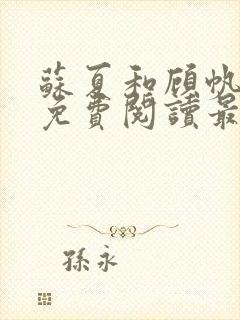 蘇夏和顧帆
免費閱讀最
孫永